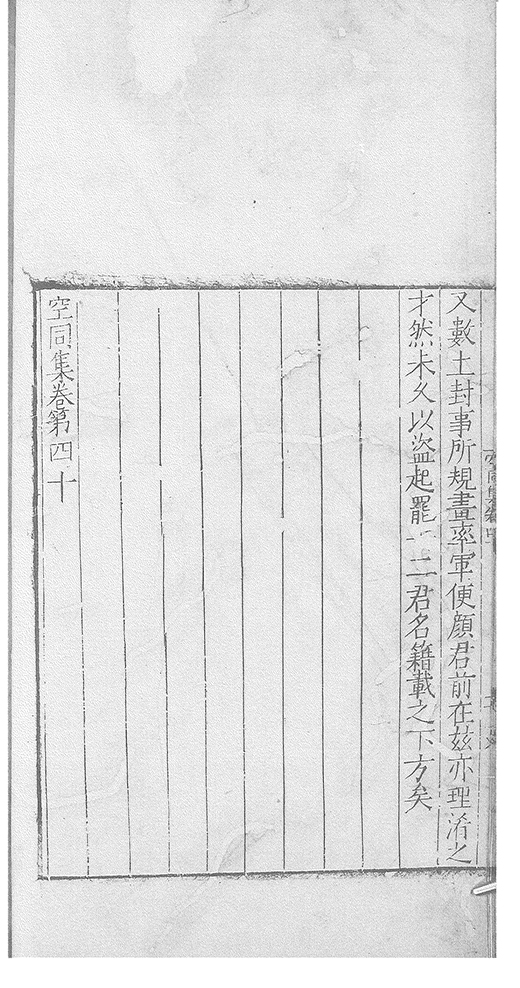 又數土封事所規畫率軍便顏君前在茲亦理淆之
才然未久以盜起罷二君名籍載之下方矣
空同集卷第四十